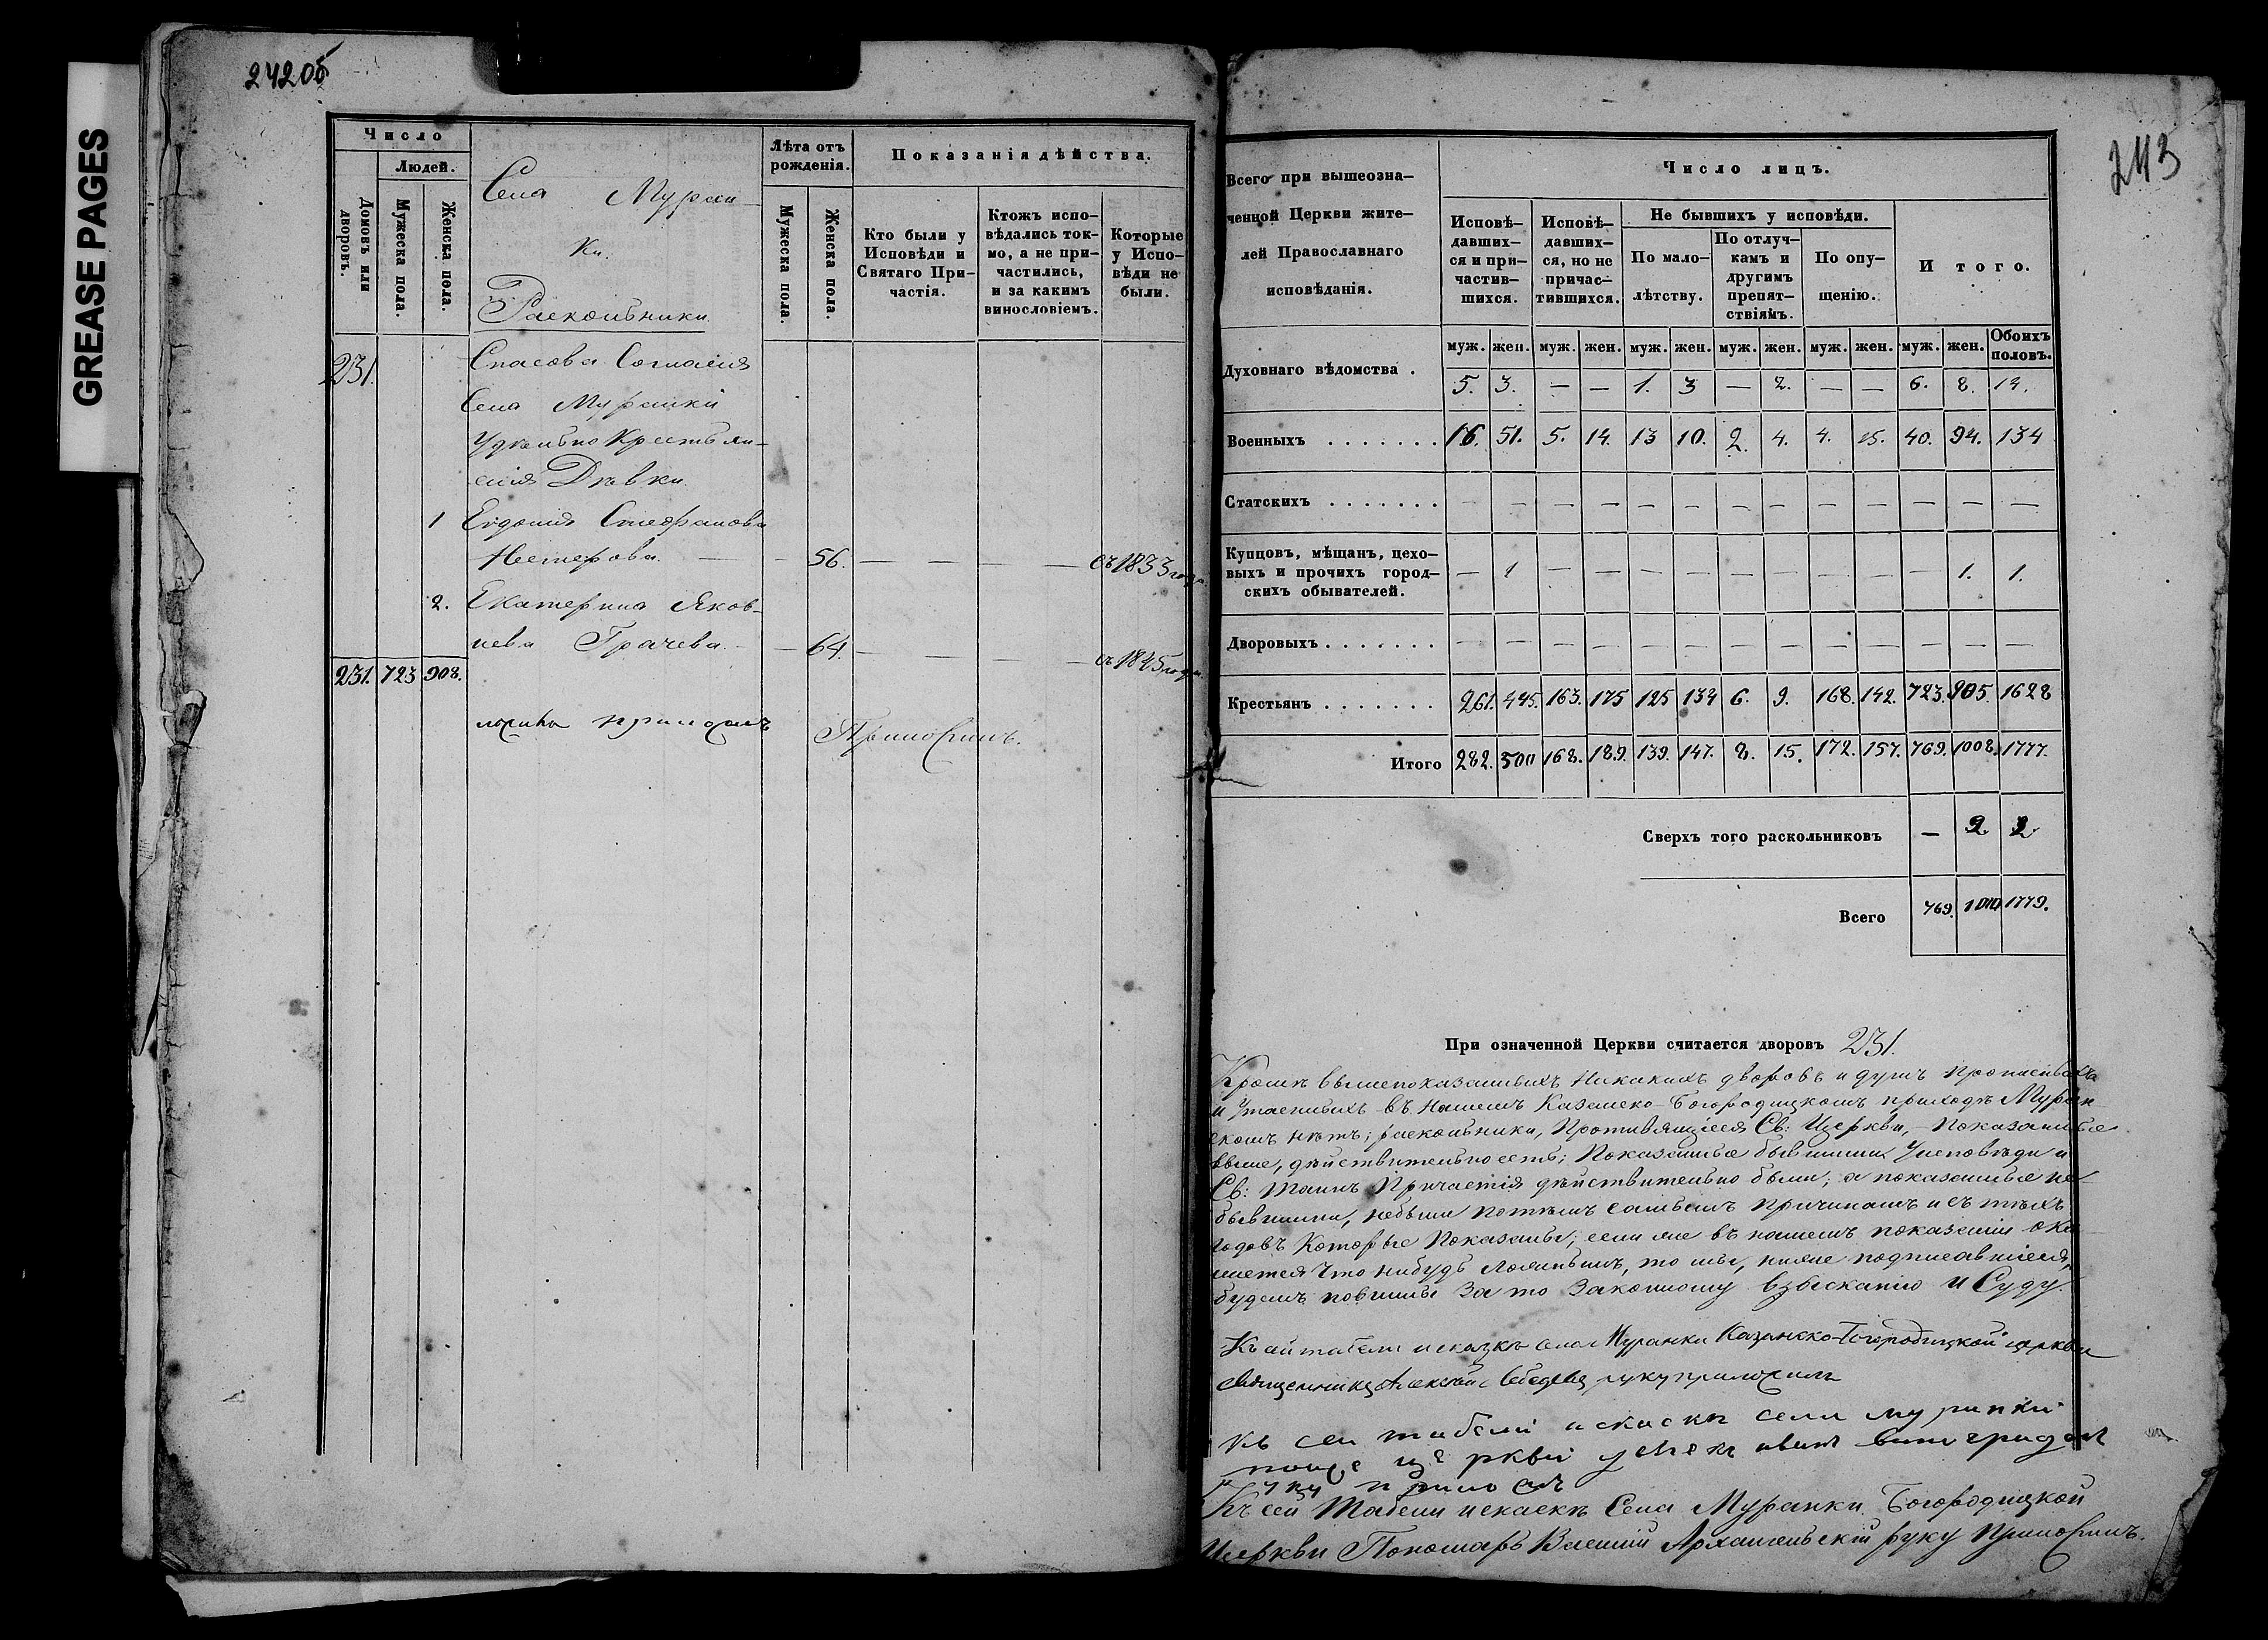 GREASE PAGES
242об
Число
Людей.
Домовъ или дворовъ.
Мужеска пола.
Женска пола.
Села Муран-
ки.
Раскольники
Лѣта отъ рожденія.
Мужеска пола.
Женска пола.
Показанія дѣйства.
Кто были у Исповѣди и Святаго Причастія.
Ктожъ исповѣдались токмо, а не причастились, и за какимъ винословіемъ.
Которые у Исповѣди не были.
231. Спасова Согласія
Села Муранки
Удѣльно Крестьян-
скія Дѣвки
1 Евдокия Стефанова
Нестерова. — — 56. — — — — съ 1833 года.
2. Екатерина Яков-
лева Грачева. — — 64. — — — — съ 1845 года.
231. 723 908.
Приложилъ.
243
Всего при вышеозна-
ченной Церкви жите-
лей Православнаго
исповѣданія.
Число лицъ.
Исповѣ-
давших-
ся и при-
частив-
шихся.
Исповѣ-
давших-
ся, но не
причас-
тившихся.
Не бывшихъ у исповѣди.
По мало-
лѣтству.
По отлуч-
камъ и
другимъ
препят-
ствіямъ.
По опу-
щенію.
Итого.
муж. жен. муж. жен. муж. жен. муж. жен. муж. жен. муж. жен. Обоихъ половъ.
Духовнаго вѣдомства . 5. 3. — — 1. 3 — 2. — — 6. 8. 14.
Военныхъ . . . . . . . 16. 51. 5. 14. 13 10. 2. 4. 4. 15. 40. 94. 134
Статскихъ . . . . . . . — — — — — — — — — — — — —
Купцовъ, мѣщанъ, цехо-
выхъ и прочихъ город-
скихъ обывателей. — 1 — — — — — — — — — 1. 1.
Дворовыхъ . . . . . . . — — — — — — — — — — — — —
Крестьянъ . . . . . . . 261. 445. 163. 175 125 134 6. 9. 168. 142. 723. 905. 1628
Итого 282. 500 168. 189. 139. 147. 8. 15. 172. 157. 769. 1008. 1777.
Сверхъ того раскольниковъ — 2. 2.
Всего 769. 1010 1779.
При означенной Церкви считается дворовъ 231.
Кромѣ вышепоказанныхъ никакихъ дворовъ и душъ прописныхъ
и утаенныхъ въ нашемъ Казанско-Богородицкомъ приходѣ Муран-
скомъ нѣтъ; раскольники, противящіеся Св: Церкви, показанные
выше, дѣйствительно есть; показанные бывшими у исповѣди и
Св: Таинъ Причастія дѣйствительно были; а показанные не
бывшими, небыли потѣмъ самымъ причинамъ и съ тѣхъ
годовъ которые показаны; если же въ нашемъ показаніи ока-
жется что нибудь ложнымъ, то мы, ниже подписавшіеся,
будемъ повинны за то законному взысканію и Суду.
Къ сей табели и сказкѣ села Муранки Казанско-Богородицкой церкви
священникъ Алексѣй Лебедевъ руку приложилъ
къ сей табели и скаскѣ села муранки
руку приложилъ
Къ сей Табели и скаскѣ Села Муранки Богородицкой
Церкви Пономарь Василій Архангельскій руку приложилъ.